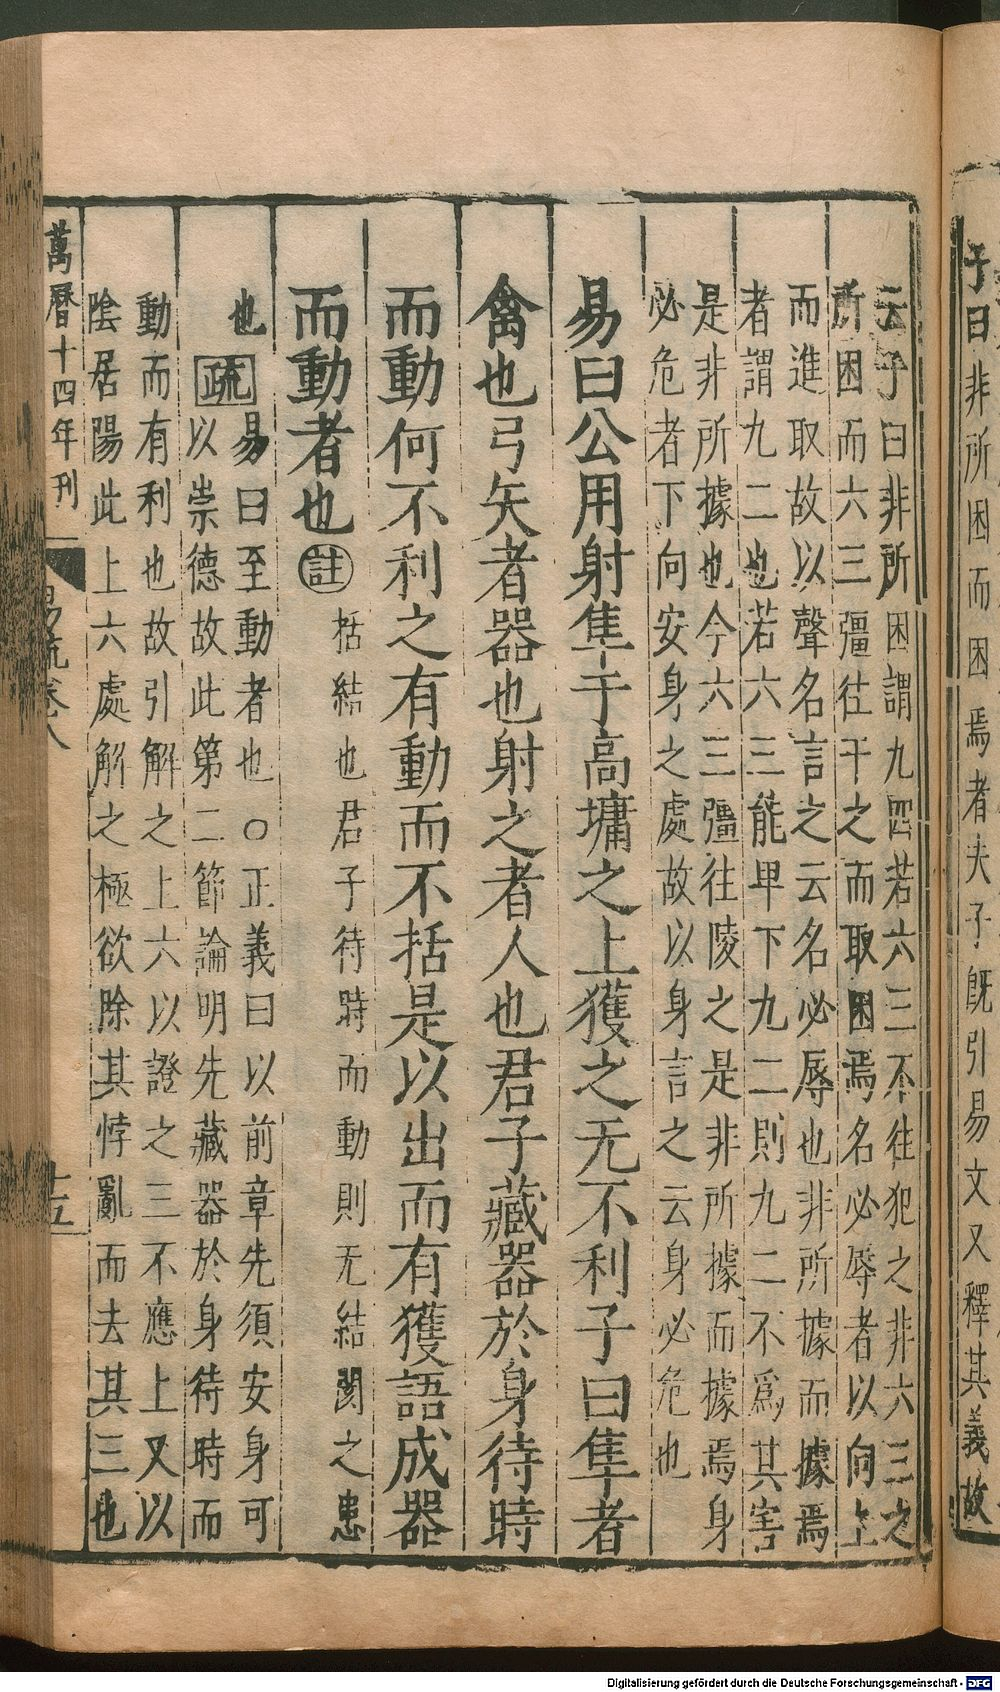 子曰非所困而困焉者夫子旣引易文又釋其義故
云子曰非所困謂九四若六三不往犯之非六三之
所困而六三彊往干之而取困焉名必辱者以向上
而進取故以聲名言之云名必辱也非所據而據焉
者謂九二也若六三能卑下九二則九二不爲其害
是非所據也今六三彊往陵之是非所據而據焉身
必危者下向安身之處故以身言之云身必危也
易曰公用射隼于高墉之上獲之无不利子曰隼者
禽也弓矢者器也射之者人也君子藏器於身待時
而動何不利之有動而不括是以出而有獲語成器
而動者也註括結也君子待時而動則无結閡之患
也疏易曰至動者也○正義曰以前章先須安身可
以崇德故此第二節論明先藏器於身待時而
動而有利也故引解之上六以證之三不應上又以
陰居陽此上六處解之極欲除其悖亂而去其三也
萬曆十四年刊
易疏卷八
十五
Digitalisierung gefördert durch die Deutsche Forschungsgemeinschaft - DFG